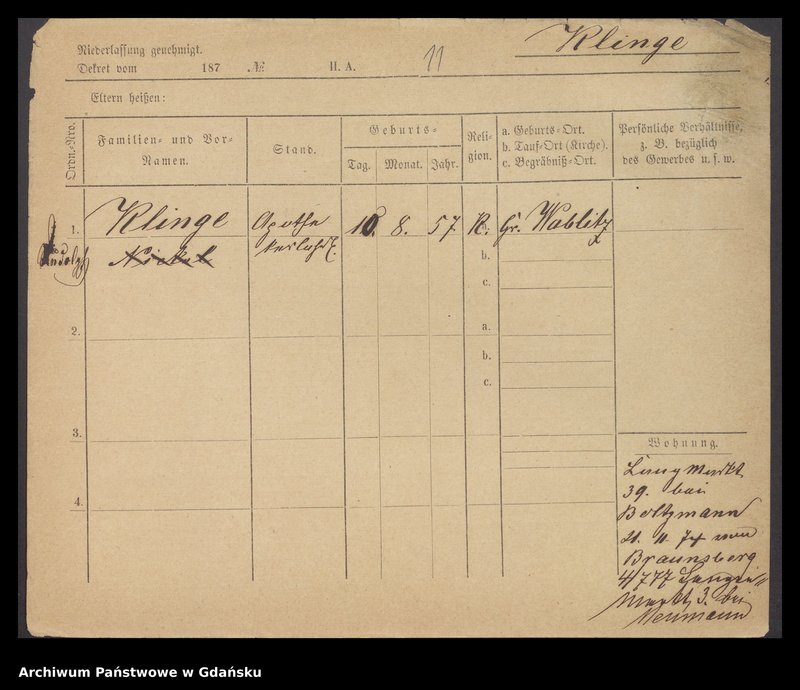 Klinge
Niederlassung genehmigt.
Dekret vom 187 № II. A. 11
Eltern heißen:
Ordn.-Nro.
Familien- und Vor-
Namen.
Stand.
Geburts-
Tag. Monat. Jahr.
Reli-
gion.
a. Geburts-Ort.
b. Tauf-Ort (Kirche).
c. Begräbniß-Ort.
Persönliche Verhältnisse,
z. B. bezüglich
des Gewerbes u. s. w.
1. Klinge Apothe 8. 57 K. Gr. Wablitz
Rudolph Nickel
b.
c.
2. a.
b.
c.
3.
4.
Wohnung.
Lang Markt
39. bei
Boltzmann
21. 11. 74 von
Braunsberg
4/7 77 Langen
Markt 3. bei
Neumann
Archiwum Państwowe w Gdańsku